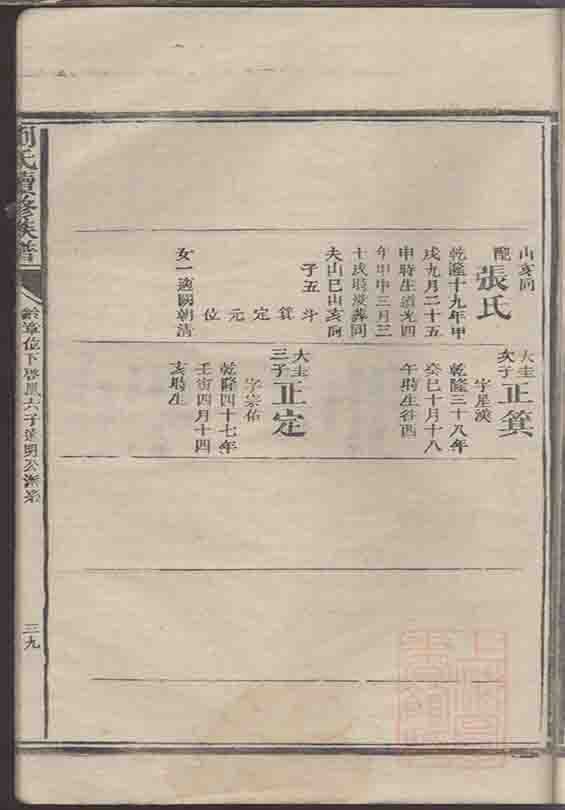 山亥向
配張氏
乾隆十九年甲
戌九月二十五
申時生道光四
年甲申三月三
十戌時歿葬同
夫山巳山亥向
子五 斗 箕 定 元 位
女一適闕朝清
大圭次子正箕
字星漢
乾隆三十八年
癸巳十月十八
午時生谷酉
大圭三子正定
字宗佑
乾隆四十七年
壬寅四月十四
亥時生
劉氏續修族譜
位下啓鳳六子達明公派系
三九